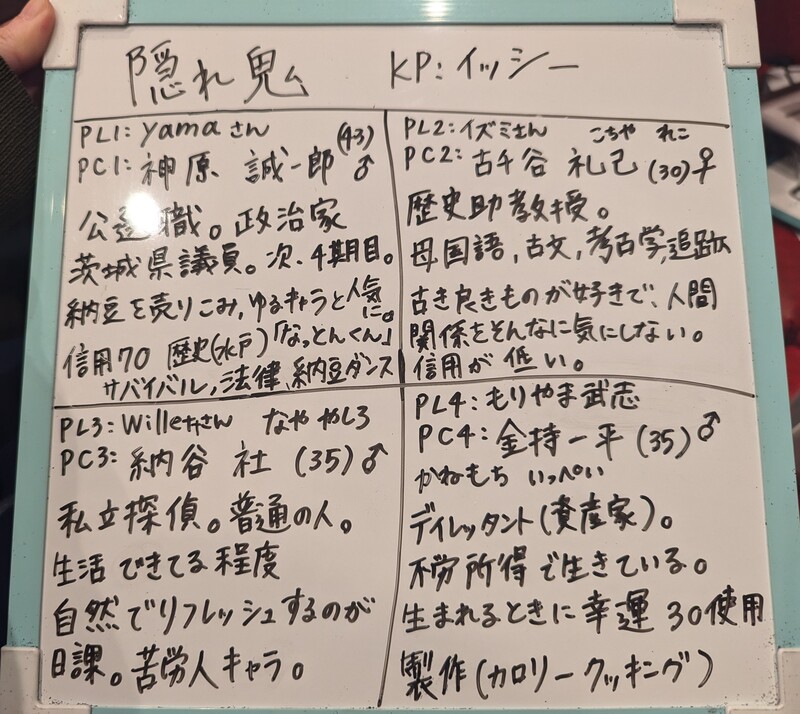 隠れ鬼 KP:イッシー
PL1:yamaさん
PC1:神原 誠一郎(43)♂
公選職。政治家
茨城県議員。次、4期目。
納豆を売りこみ、ゆるキャラと人気に。
信用70 歴史(水戸)「なっとんくん」
サバイバル,法律,納豆ダンス
PL2:イズミさん こちや れこ
PC2:古千谷 礼己(30)♀
歴史助教授。
母国語,古文,考古学,追跡
古き良きものが好きで、人間
関係をそんなに気にしない。
信用が低い。
PL3:Willeさん なや やしろ
PC3:納谷 社 (35)♂
私立探偵。普通の人。
生活できてる程度
自然でリフレッシュするのが
日課。苦労人キャラ。
PL4:もりやま武志
PC4:金持一平(35)♂
かねもち いっぺい
ディレッタント(資産家)。
不労所得で生きている。
生まれるときに幸運30使用
製作(カロリークッキング)